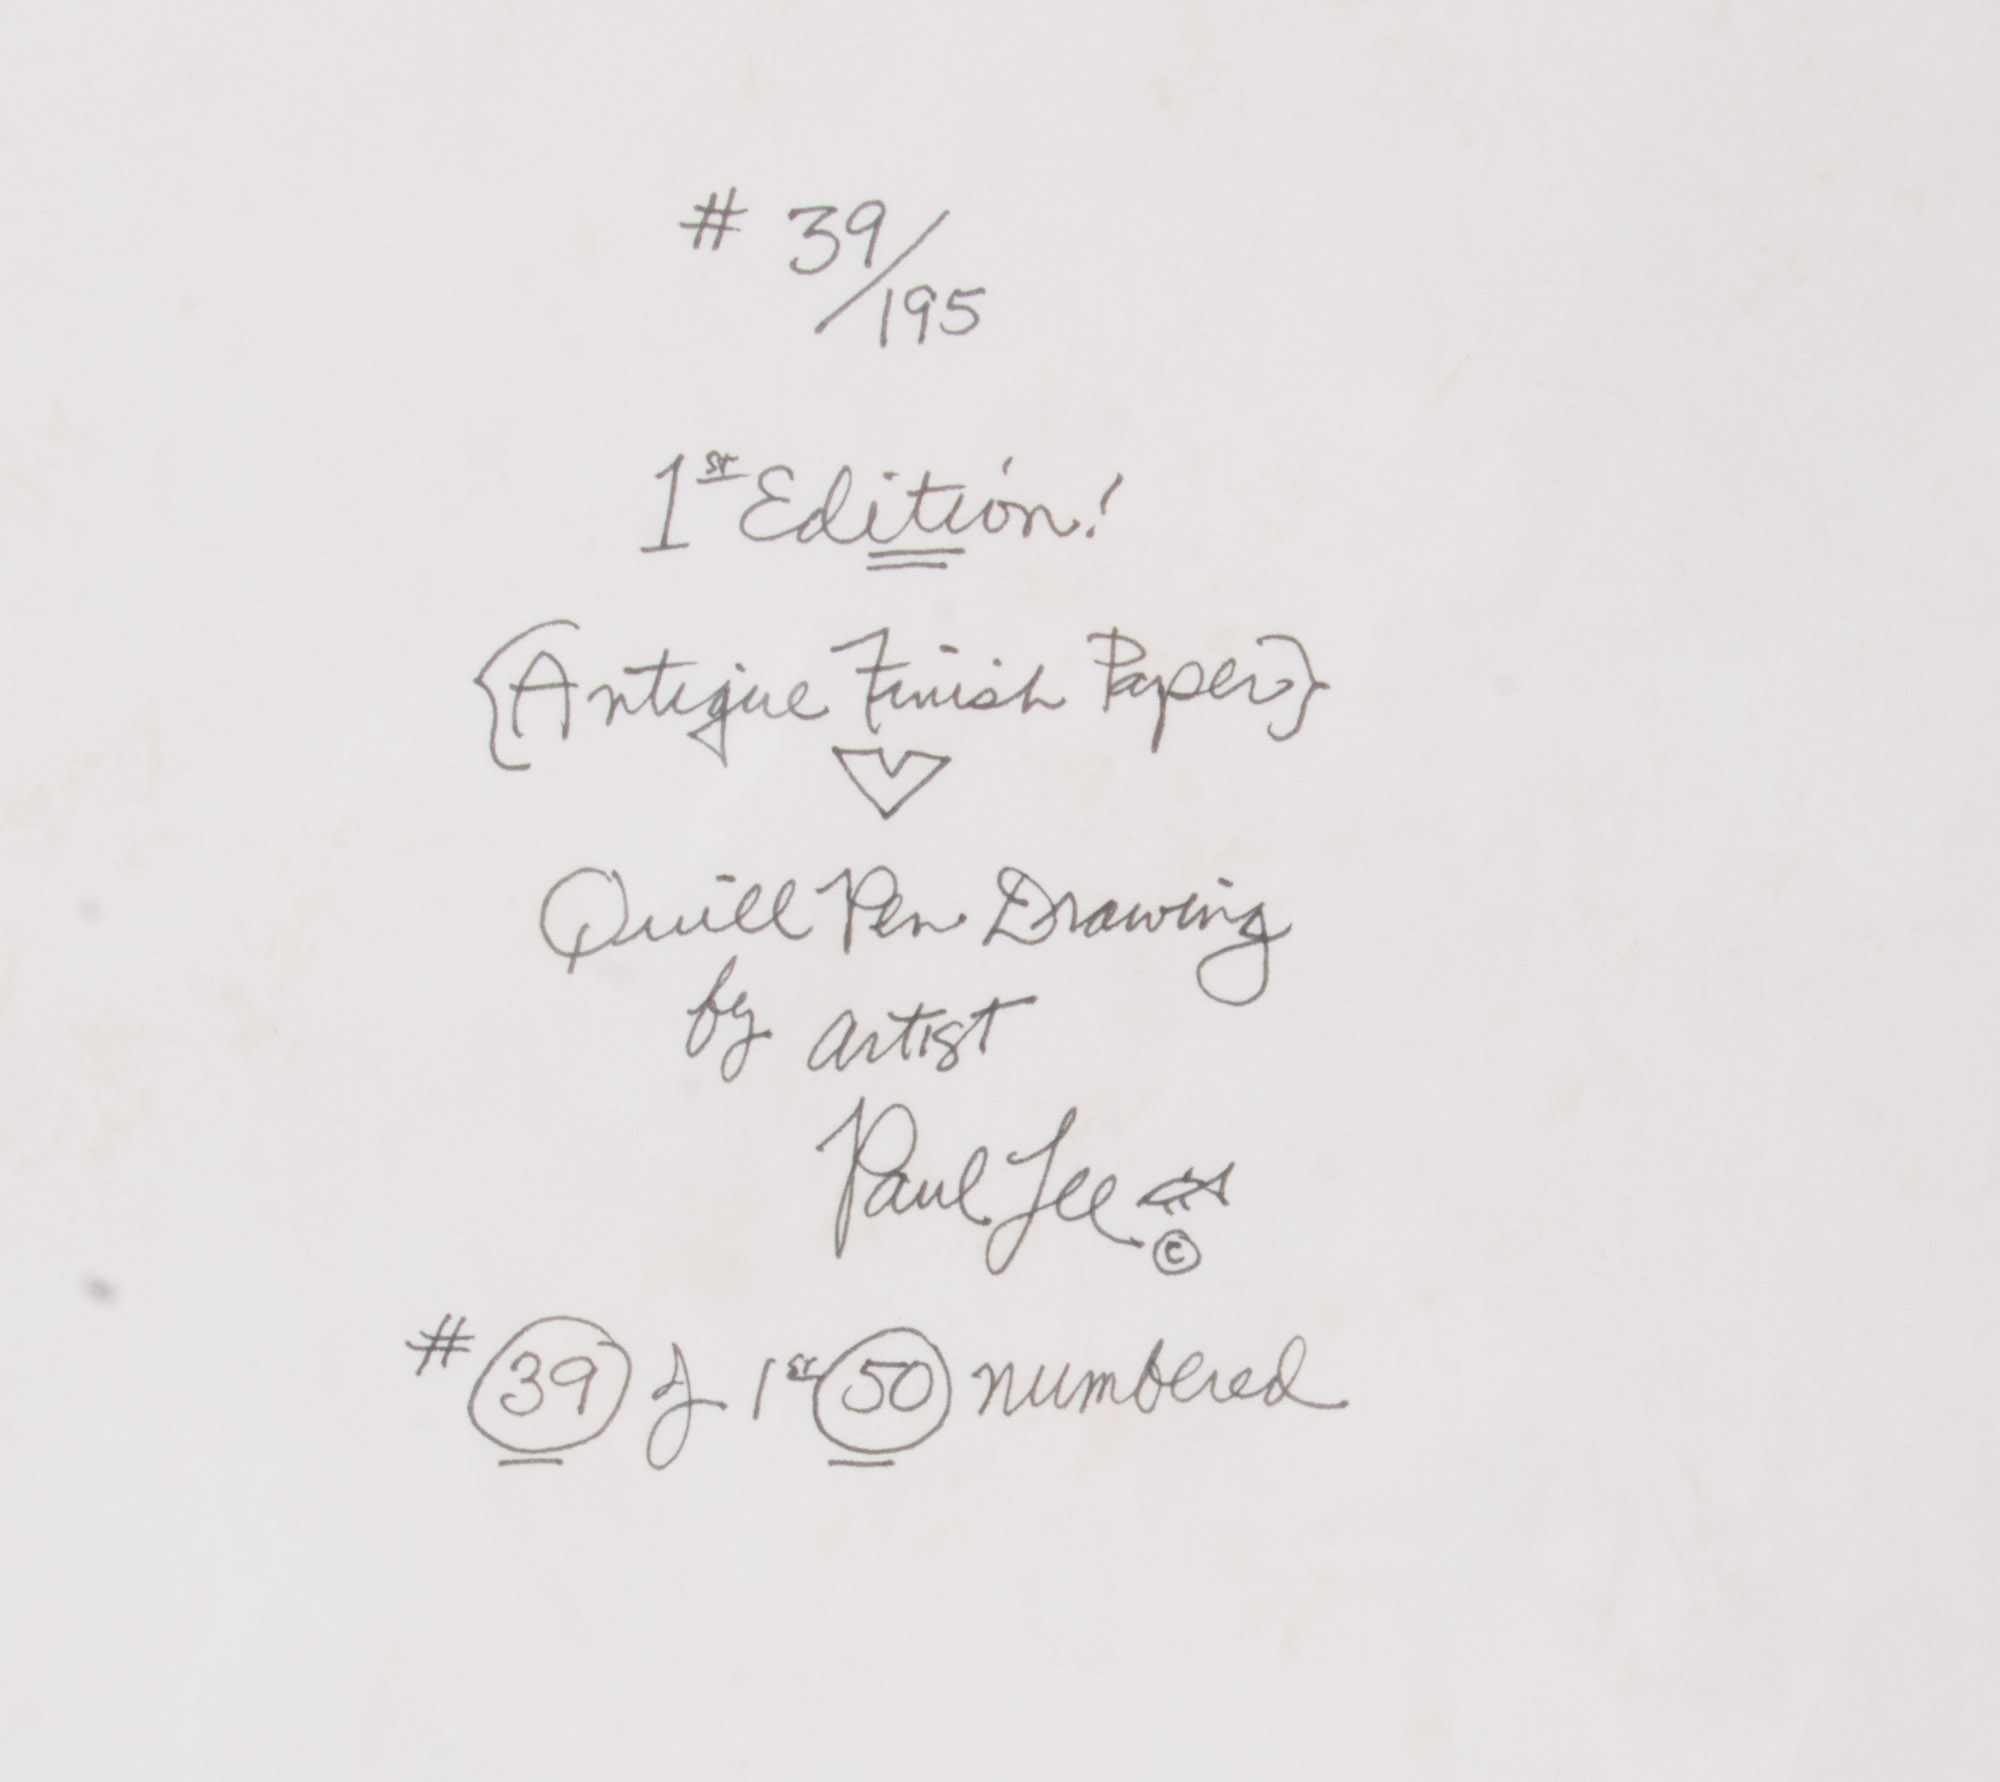 # 39/195
1st Edition!
{Antique Finish Paper}
Quill Pen Drawing
by artist
Paul Lee
©
# 39 of 1st 50 numbered